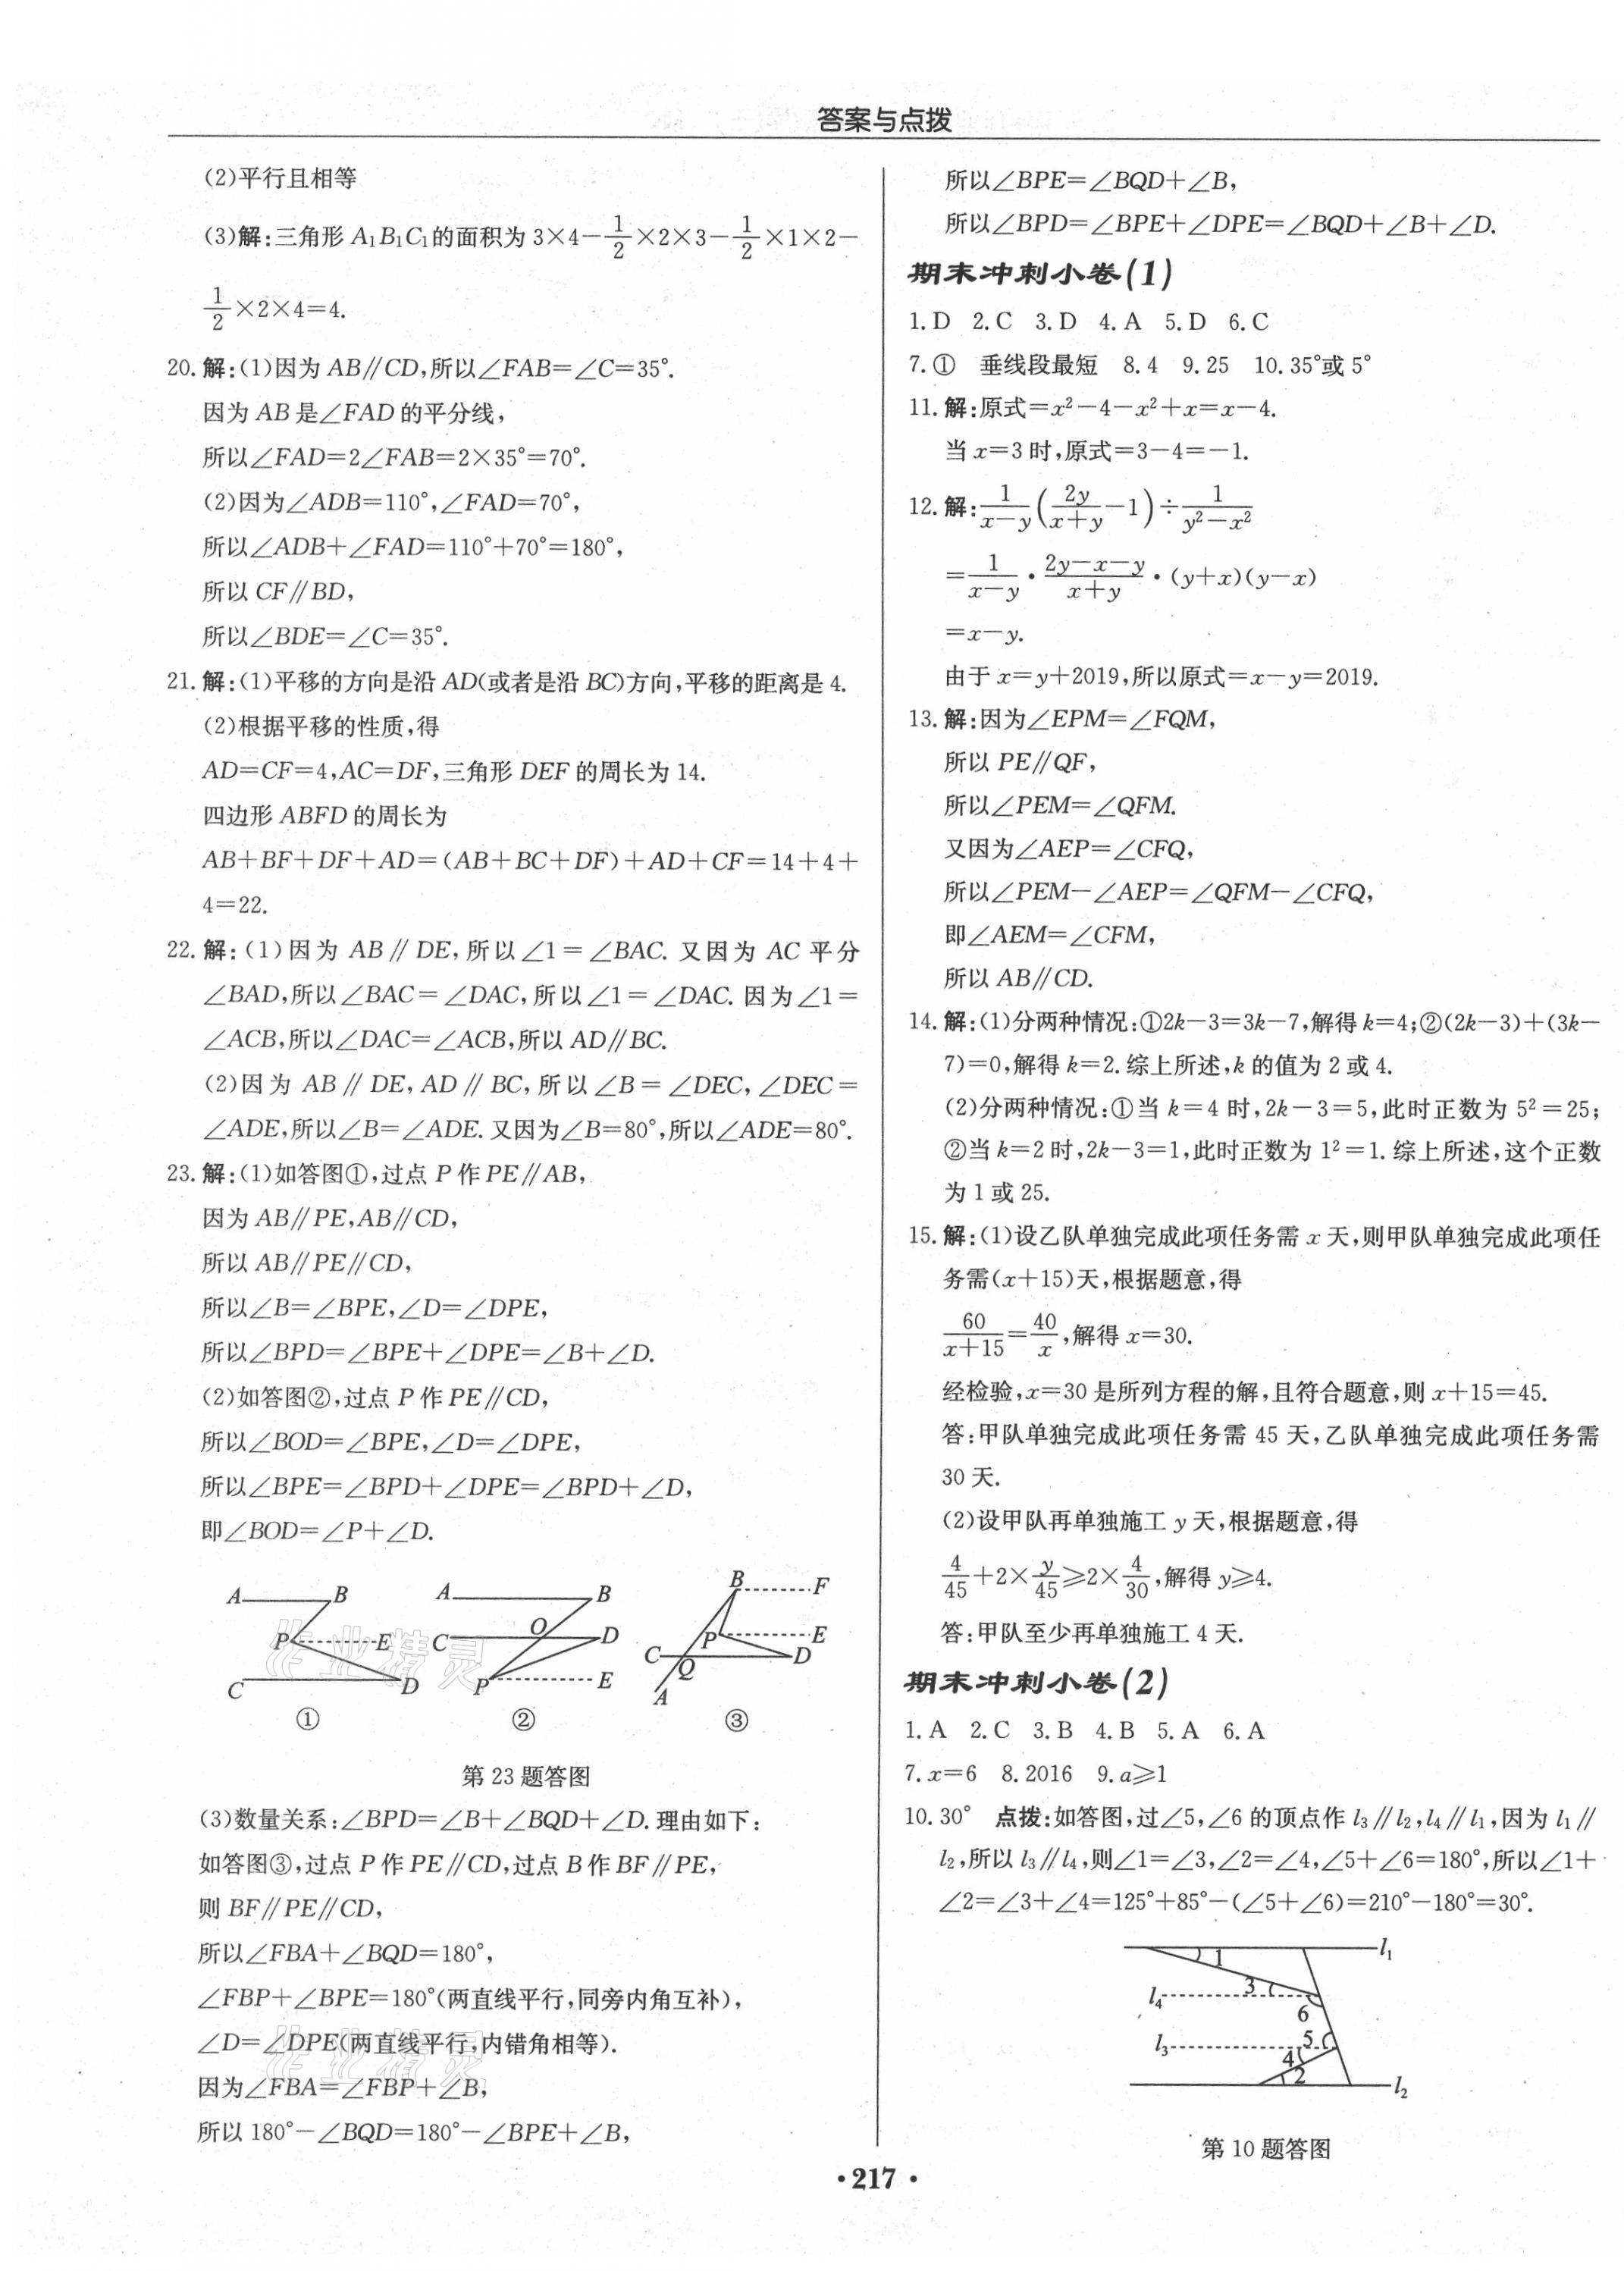 答案与点拨
(2)平行且相等
(3)解:三角形 A₁B₁C₁的面积为 3×4−1/2×2×3−1/2×1×2−
1/2×2×4=4.
20. 解:(1)因为 AB∥CD,所以∠FAB=∠C=35°.
因为 AB 是∠FAD 的平分线,
所以∠FAD=2∠FAB=2×35°=70°.
(2)因为∠ADB=110°,∠FAD=70°,
所以∠ADB+∠FAD=110°+70°=180°,
所以 CF∥BD,
所以∠BDE=∠C=35°.
21. 解:(1)平移的方向是沿 AD(或者是沿 BC)方向,平移的距离是 4.
(2)根据平移的性质,得
AD=CF=4,AC=DF,三角形 DEF 的周长为 14.
四边形 ABFD 的周长为
AB+BF+DF+AD=(AB+BC+DF)+AD+CF=14+4+
4=22.
22. 解:(1)因为 AB∥DE,所以∠1=∠BAC. 又因为 AC 平分
∠BAD,所以∠BAC=∠DAC,所以∠1=∠DAC. 因为∠1=
∠ACB,所以∠DAC=∠ACB,所以 AD∥BC.
(2)因为 AB∥DE,AD∥BC,所以∠B=∠DEC,∠DEC=
∠ADE,所以∠B=∠ADE. 又因为∠B=80°,所以∠ADE=80°.
23. 解:(1)如答图①,过点 P 作 PE∥AB,
因为 AB∥PE,AB∥CD,
所以 AB∥PE∥CD,
所以∠B=∠BPE,∠D=∠DPE,
所以∠BPD=∠BPE+∠DPE=∠B+∠D.
(2)如答图②,过点 P 作 PE∥CD,
所以∠BOD=∠BPE,∠D=∠DPE,
所以∠BPE=∠BPD+∠DPE=∠BPD+∠D,
即∠BOD=∠P+∠D.
A B P E C D
①
A B O C D P E
②
B F P E C Q D A
③
第 23 题答图
(3)数量关系:∠BPD=∠B+∠BQD+∠D. 理由如下:
如答图③,过点 P 作 PE∥CD,过点 B 作 BF∥PE,
则 BF∥PE∥CD,
所以∠FBA+∠BQD=180°,
∠FBP+∠BPE=180°(两直线平行,同旁内角互补),
∠D=∠DPE(两直线平行,内错角相等).
因为∠FBA=∠FBP+∠B,
所以 180°−∠BQD=180°−∠BPE+∠B,
所以∠BPE=∠BQD+∠B,
所以∠BPD=∠BPE+∠DPE=∠BQD+∠B+∠D.
期末冲刺小卷(1)
1. D 2. C 3. D 4. A 5. D 6. C
7. ① 垂线段最短 8. 4 9. 25 10. 35°或 5°
11. 解:原式=x²−4−x²+x=x−4.
当 x=3 时,原式=3−4=−1.
12. 解:1/(x−y)(2y/(x+y)−1)÷1/(y²−x²)
=1/(x−y)·(2y−x−y)/(x+y)·(y+x)(y−x)
=x−y.
由于 x=y+2019,所以原式=x−y=2019.
13. 解:因为∠EPM=∠FQM,
所以 PE∥QF,
所以∠PEM=∠QFM.
又因为∠AEP=∠CFQ,
所以∠PEM−∠AEP=∠QFM−∠CFQ,
即∠AEM=∠CFM,
所以 AB∥CD.
14. 解:(1)分两种情况:①2k−3=3k−7,解得 k=4;②(2k−3)+(3k−
7)=0,解得 k=2. 综上所述,k 的值为 2 或 4.
(2)分两种情况:①当 k=4 时,2k−3=5,此时正数为 5²=25;
②当 k=2 时,2k−3=1,此时正数为 1²=1. 综上所述,这个正数
为 1 或 25.
15. 解:(1)设乙队单独完成此项任务需 x 天,则甲队单独完成此项任
务需(x+15)天,根据题意,得
60/(x+15)=40/x,解得 x=30.
经检验,x=30 是所列方程的解,且符合题意,则 x+15=45.
答:甲队单独完成此项任务需 45 天,乙队单独完成此项任务需
30 天.
(2)设甲队再单独施工 y 天,根据题意,得
4/45+2×y/45≥2×4/30,解得 y≥4.
答:甲队至少再单独施工 4 天.
期末冲刺小卷(2)
1. A 2. C 3. B 4. B 5. A 6. A
7. x=6 8. 2016 9. a≥1
10. 30° 点拨:如答图,过∠5,∠6 的顶点作 l₃∥l₂,l₄∥l₁,因为 l₁∥
l₂,所以 l₃∥l₄,则∠1=∠3,∠2=∠4,∠5+∠6=180°,所以∠1+
∠2=∠3+∠4=125°+85°−(∠5+∠6)=210°−180°=30°.
1 l₁
3
l₄ 6
5
l₃ 4
2 l₂
第 10 题答图
·217·
作业精灵
作业精灵